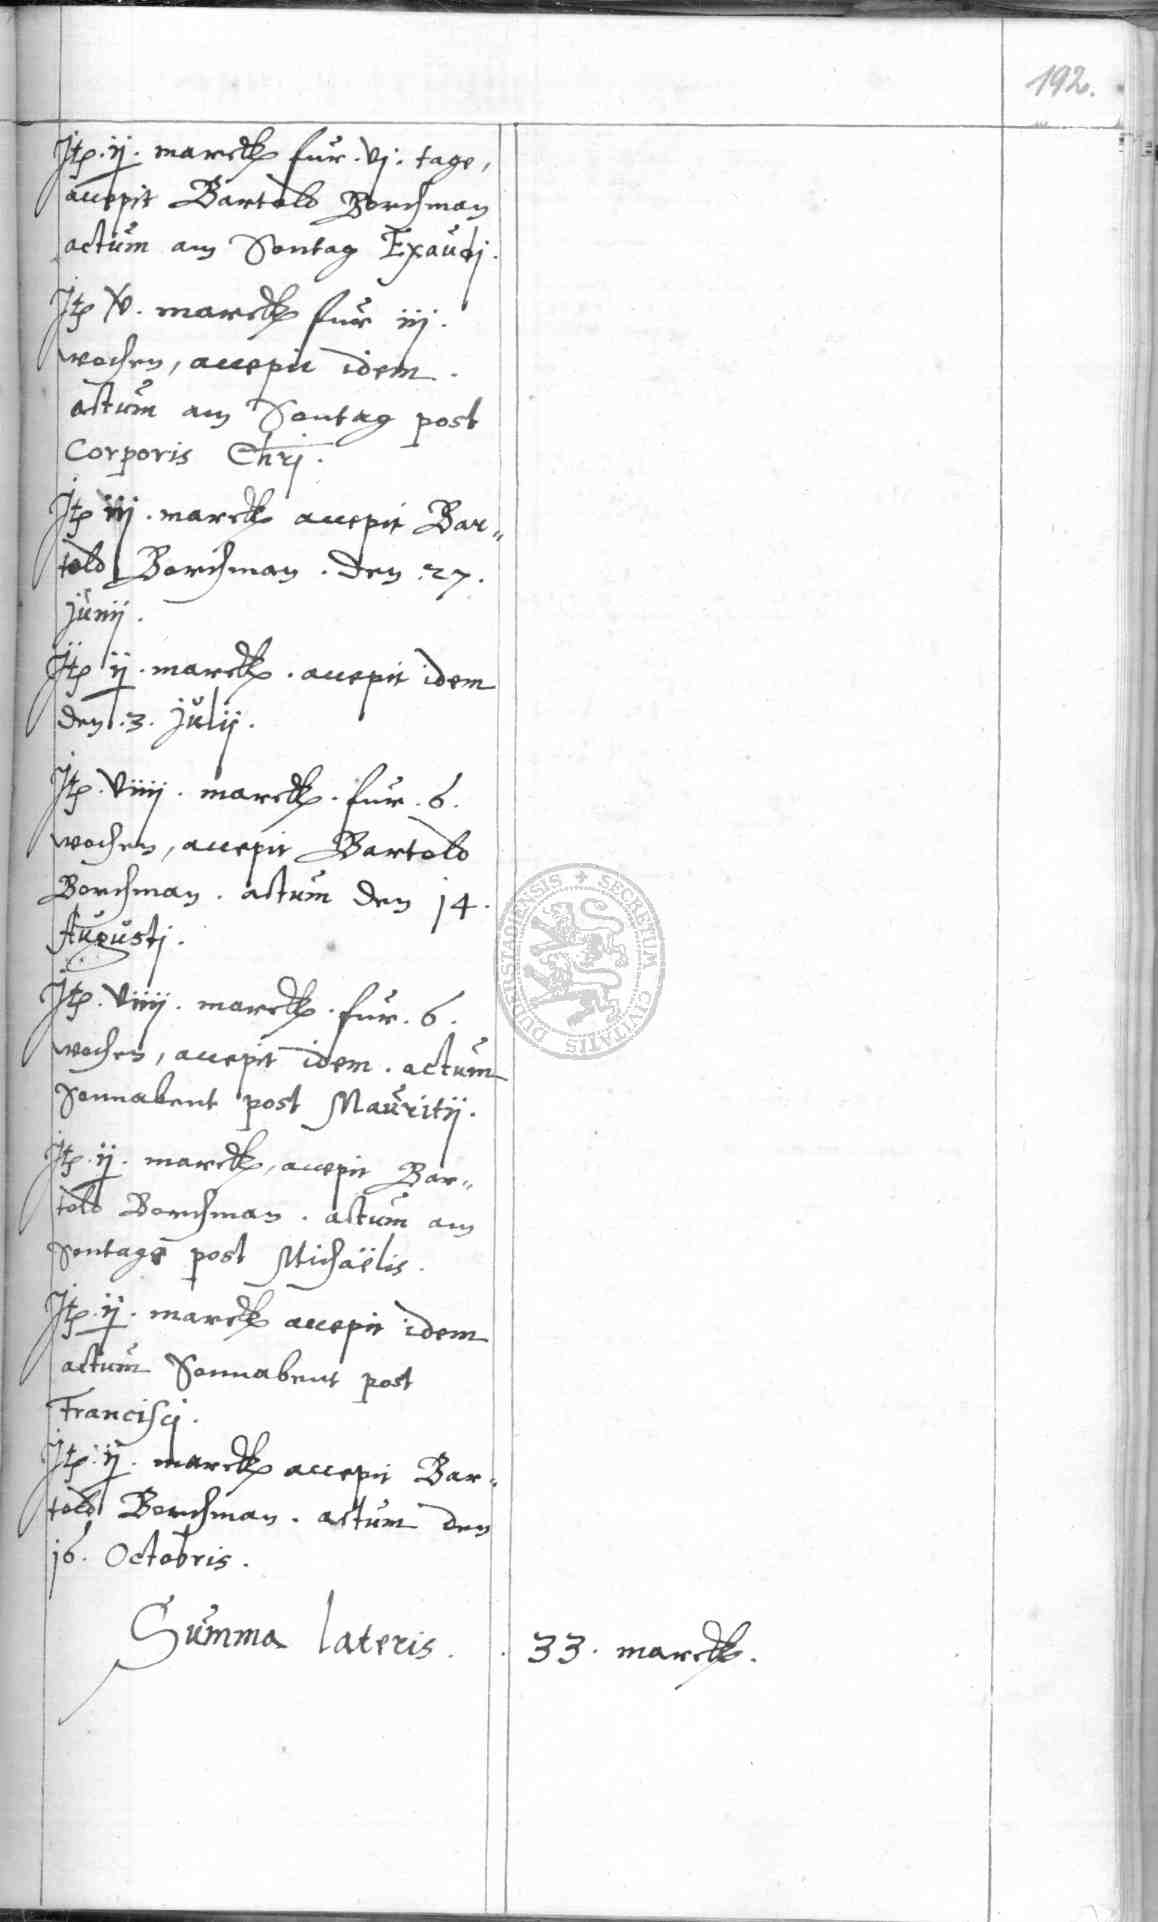 192.
Itp. ij. marck fur. vj. tage,
accepit Bartold Borchman
actum am Sontag Exaudj.
Itp v. marck fur iij.
wochen, accepit idem.
actum am Sontag post
Corporis Chrj.
Itp iij. marck accepit Bar„
told Borchman. den 27.
junij.
Itp ij. marck. accepit idem
den. 3. julij.
Itp. viiij. marck. fur. 6.
wochen, accepit Bartold
Borchman. actum den 14.
Augustj.
Itp. viiij. marck. fur. 6.
wochen, accepit idem. actum
Sonnabent post Mauritij.
Itp. ij. marck, accepit Bar„
told Borchman. actum am
Sontage post Michaëlis.
Itp. ij. marck accepit idem
actum Sonnabent post
Francisci.
Itp. ij. marck accepit Bar„
told Borchman. actum den
16. Octobris.
Summa lateris. 33. marck.
SECRETUM CIVITATIS DUDERSTADIENSIS